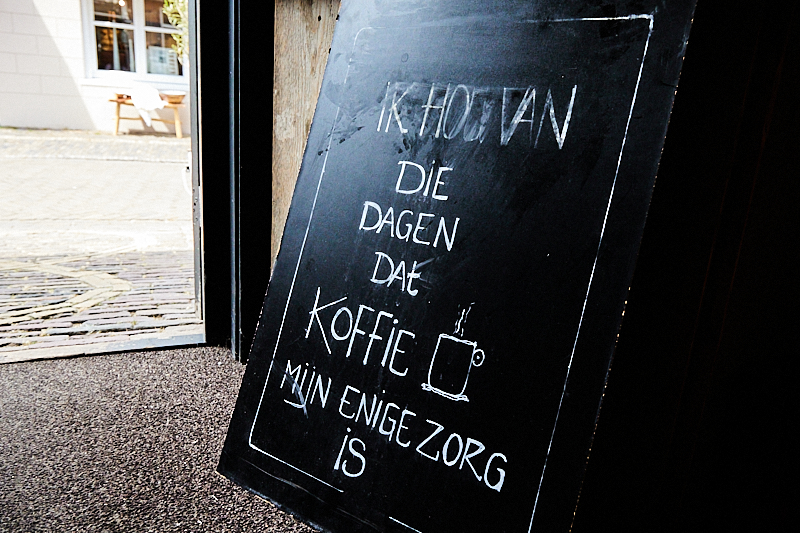 IK HOU VAN
DIE
DAGEN
DAt
KOFFIE
MIJN ENIGE ZORG
iS